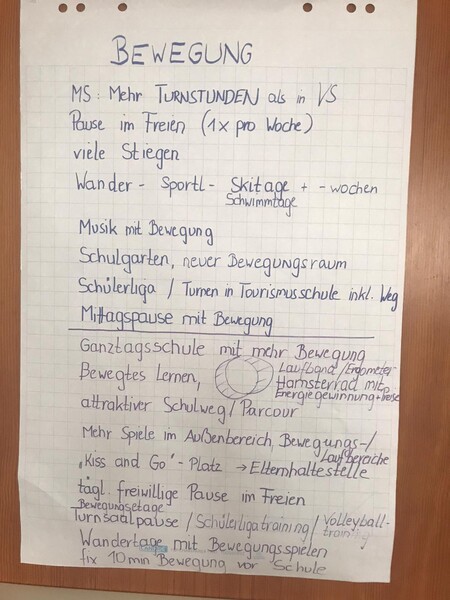 BEWEGUNG
MS: Mehr TURNSTUNDEN als in VS
Pause im Freien (1x pro Woche)
viele Stiegen
Wander - Sportl - Skitage + - wochen
Schwimmtage
Musik mit Bewegung
Schulgarten, neuer Bewegungsraum
Schülerliga / Turnen in Tourismusschule inkl. Weg
Mittagspause mit Bewegung
Ganztagsschule mit mehr Bewegung
Bewegtes Lernen, Laufband / Ergometer
Hamsterrad mit
Energiegewinnung
attraktiver Schulweg / Parcour
Mehr Spiele im Außenbereich, Bewegungs-/
Laufbereiche
"Kiss and Go"-Platz → Elternhaltestelle
tägl. freiwillige Pause im Freien
Bewegungsetage
Turnsaalpause / Schülerligatraining / Volleyball-
training
Wandertage mit Bewegungsspielen
fix 10 min Bewegung vor Schule